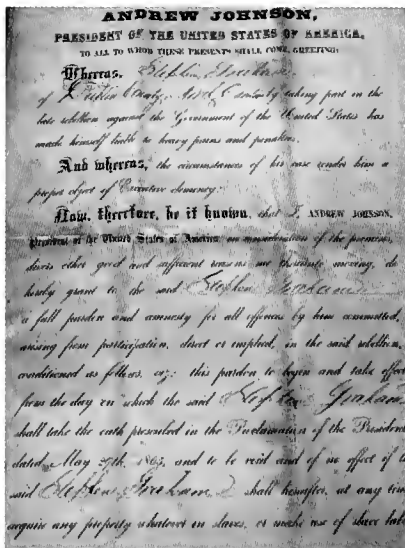 ANDREW JOHNSON,
PRESIDENT OF THE UNITED STATES OF AMERICA,
TO ALL TO WHOM THESE PRESENTS SHALL COME, GREETING:
Whereas, Stephen Graham
of Duplin County, by taking part in the
late rebellion against the Government of the United States has
made himself liable to heavy pains and penalties.
And whereas, the circumstances of his case render him a
proper object of Executive clemency.
Now, therefore, be it known, that I, ANDREW JOHNSON,
President of the United States of America, in consideration of the premises,
divers other good and sufficient reasons me thereunto moving, do
hereby grant to the said Stephen Graham
a full pardon and amnesty for all offences by him committed,
arising from participation, direct or implied, in the said rebellion,
conditioned as follows, viz: this pardon to begin and take effect
from the day on which the said Stephen Graham
shall take the oath prescribed in the Proclamation of the President
dated May 29th, 1865, and to be void and of no effect if the
said Stephen Graham shall hereafter, at any time
acquire any property whatever in slaves, or make use of slave labor